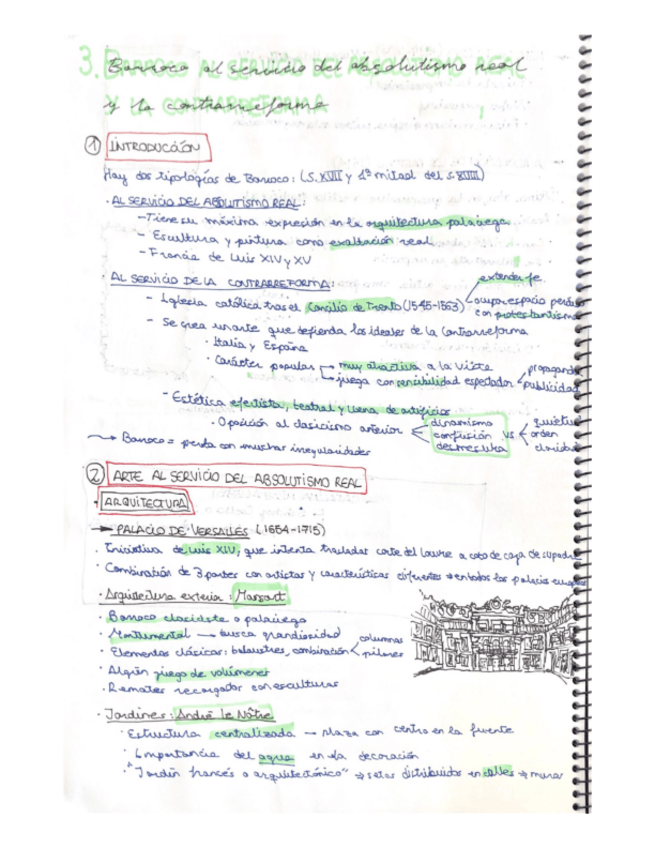 3. Barroco al servicio del absolutismo real
y la contrarreforma
① INTRODUCCIÓN
Hay dos tipologías de Barroco: (S. XVII y 1ª mitad del s. XVIII)
· AL SERVICIO DEL ABSOLUTISMO REAL:
- Tiene su máxima expresión en la arquitectura palaciega
- Escultura y pintura como exaltación real
- Francia de Luis XIV y XV
· AL SERVICIO DE LA CONTRARREFORMA:
extender fe
- Iglesia católica tras el Concilio de Trento (1545-1563)
ocupar espacio perdido
con protestantismo
- Se crea un arte que defienda los ideales de la Contrarreforma
· Italia y España
· Carácter popular → muy atractiva a la vista
→ juega con sensibilidad espectador
propaganda
publicidad
- Estética efectista, teatral y llena de artificios
· Oposición al clasicismo anterior
dinamismo
confusión
desmesura
vs
quietud
orden
claridad
→ Barroco = perla con muchas irregularidades
② ARTE AL SERVICIO DEL ABSOLUTISMO REAL
· ARQUITECTURA
→ PALACIO DE VERSALLES (1664-1715)
· Iniciativa de Luis XIV, que intenta trasladar corte del Louvre a coto de caza de su padre
· Combinación de 3 partes con artistas y características diferentes → en todos los palacios europeos
· Arquitectura exterior: Mansart
· Barroco clasicista o palaciego
· Monumental → busca grandiosidad
· Elementos clásicos: balaustres, combinación < columnas
pilares
· Algún juego de volúmenes
· Remates recargados con esculturas
· Jardines: André Le Nôtre
· Estructura centralizada → plaza con centro en la fuente
· Importancia del agua en la decoración
· "Jardín francés o arquitectónico" → setos distribuidos en calles → muros